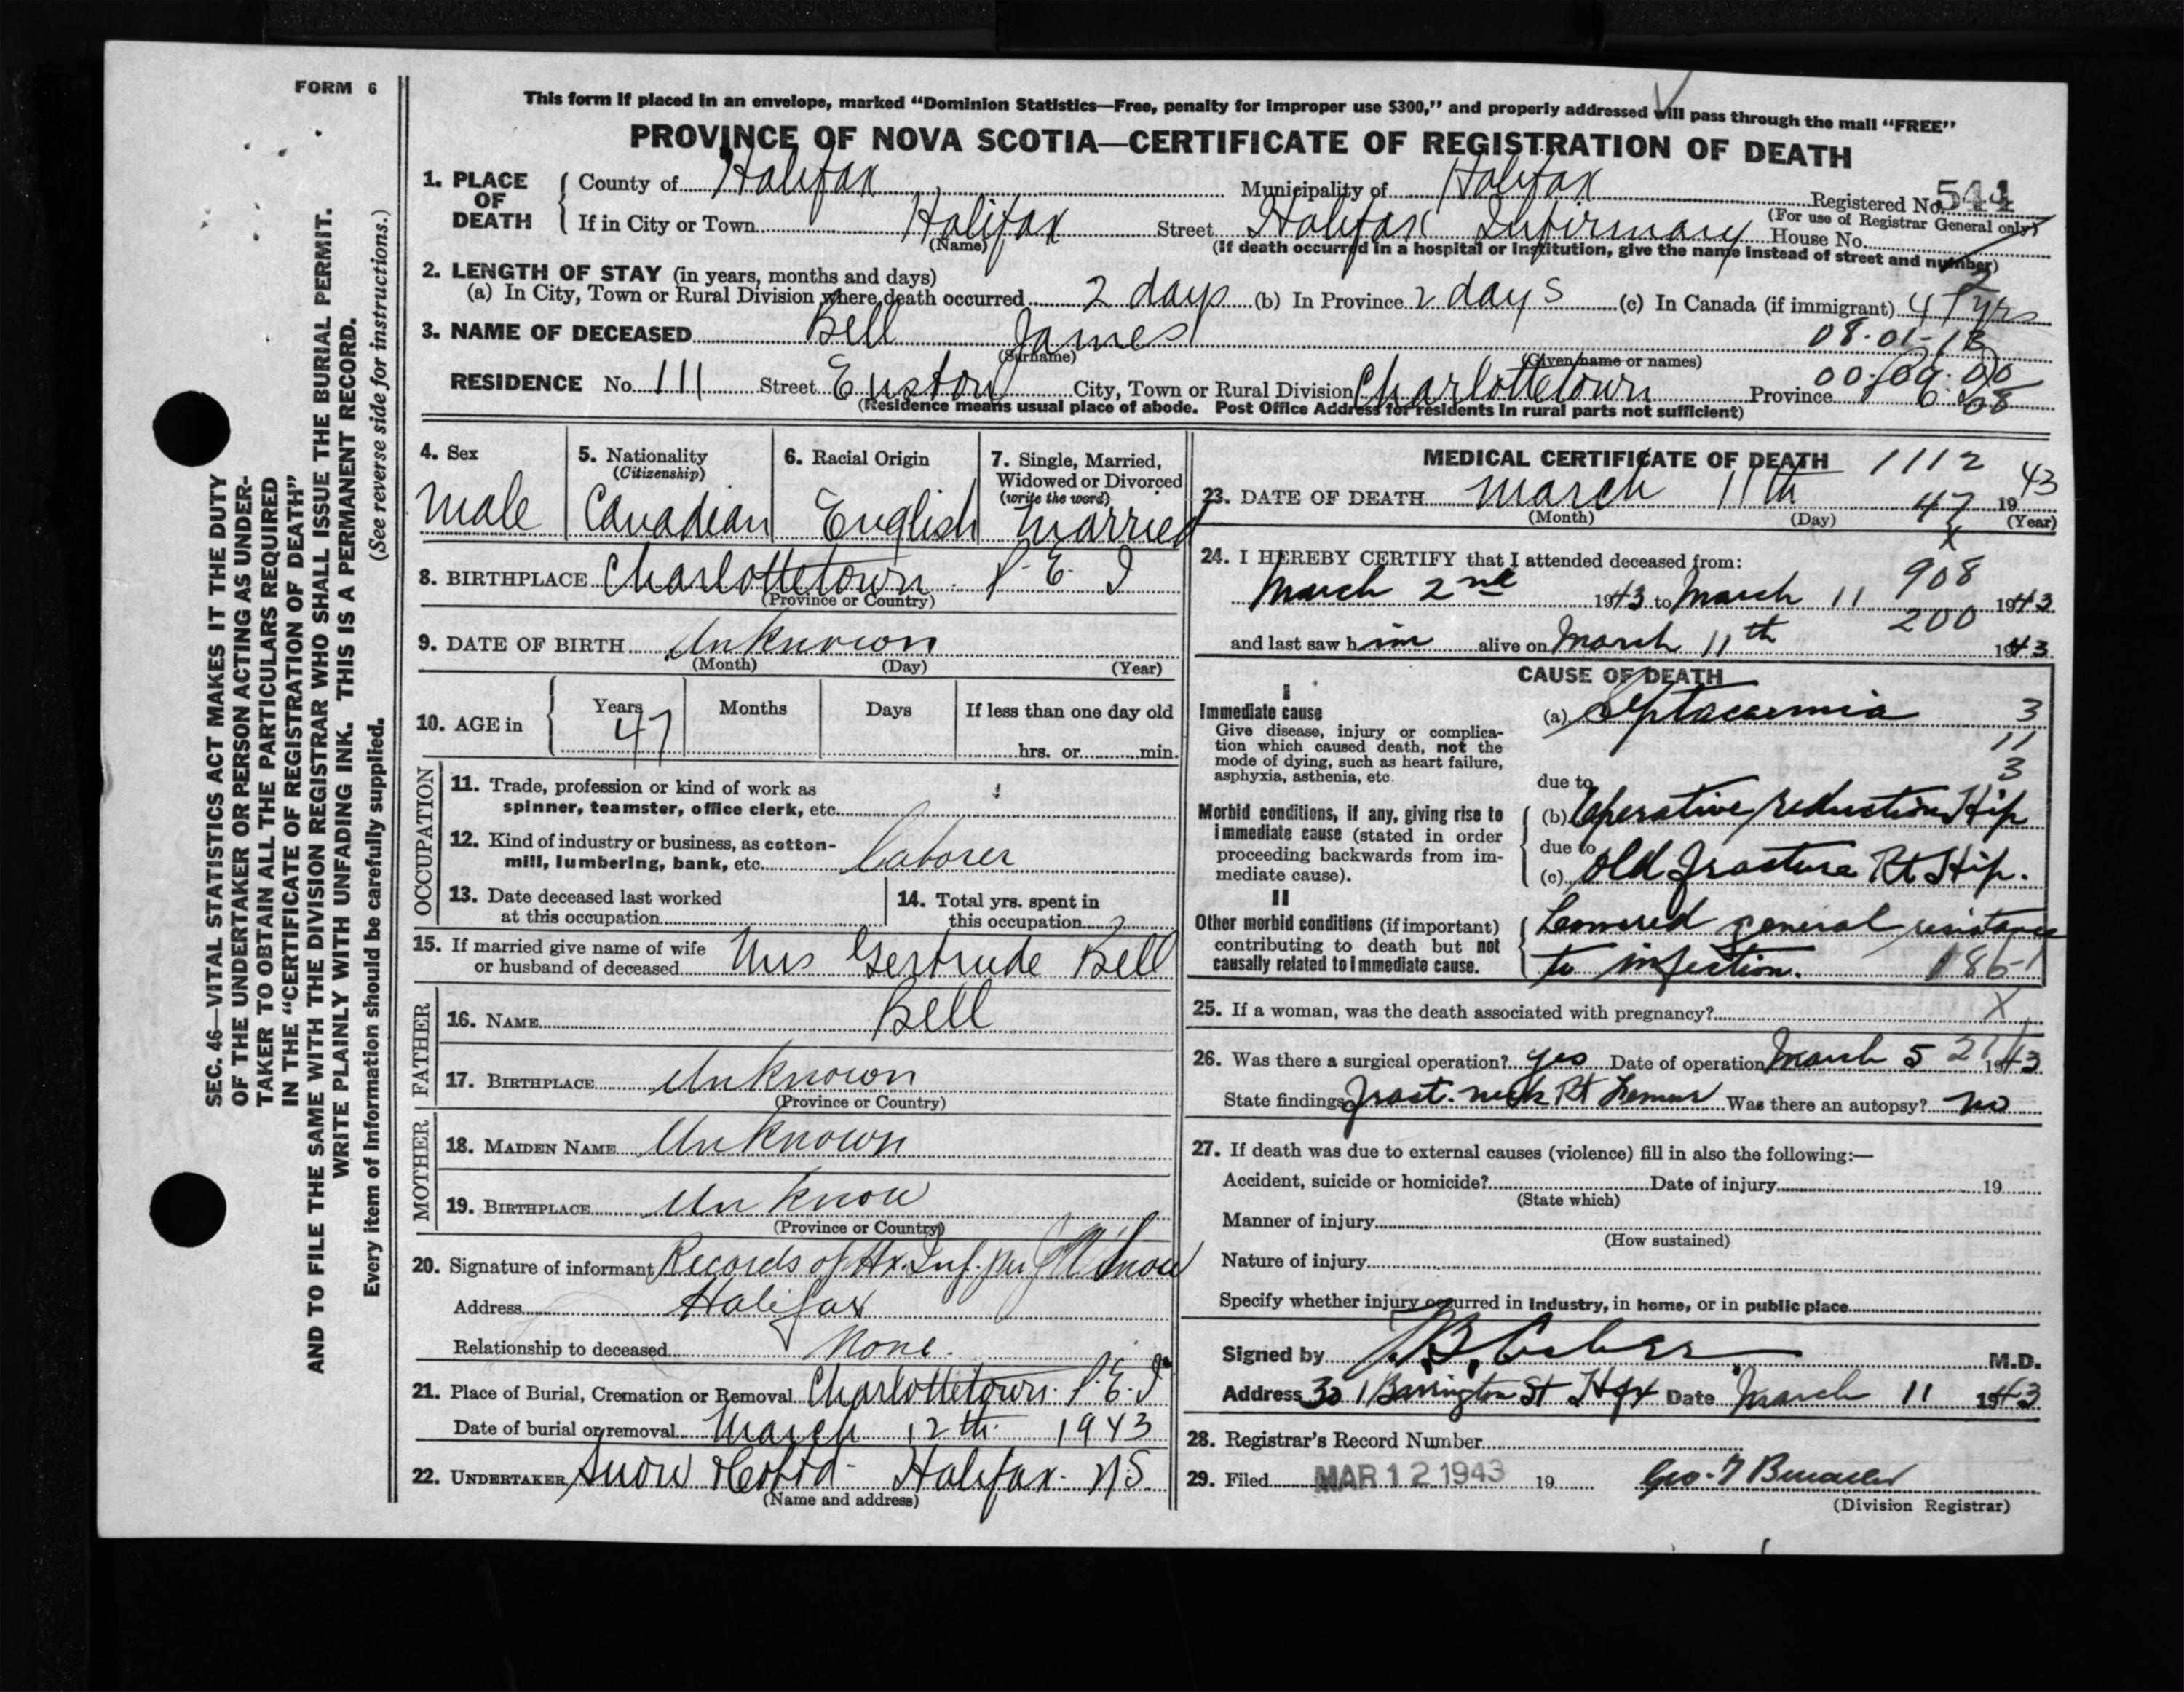 FORM 6
This form if placed in an envelope, marked “Dominion Statistics—Free, penalty for improper use $300,” and properly addressed will pass through the mail “FREE”
PROVINCE OF NOVA SCOTIA—CERTIFICATE OF REGISTRATION OF DEATH
SEC. 46—VITAL STATISTICS ACT MAKES IT THE DUTY
OF THE UNDERTAKER OR PERSON ACTING AS UNDER-
TAKER TO OBTAIN ALL THE PARTICULARS REQUIRED
IN THE “CERTIFICATE OF REGISTRATION OF DEATH”
AND TO FILE THE SAME WITH THE DIVISION REGISTRAR WHO SHALL ISSUE THE BURIAL PERMIT.
WRITE PLAINLY WITH UNFADING INK. THIS IS A PERMANENT RECORD.
Every item of information should be carefully supplied. (See reverse side for instructions.)
1. PLACE OF DEATH County of Halifax Municipality of Halifax Registered No. 544
(For use of Registrar General only)
If in City or Town Halifax Street Halifax Infirmary House No.
(Name) (If death occurred in a hospital or institution, give the name instead of street and number)
2. LENGTH OF STAY (in years, months and days)
(a) In City, Town or Rural Division where death occurred 2 days (b) In Province 2 days (c) In Canada (if immigrant) 47 yrs
3. NAME OF DECEASED Bell James 08-01-13
(Surname) (Given name or names)
00-09-00
RESIDENCE No. 111 Street Euston City, Town or Rural Division Charlottetown Province P E I 08
(Residence means usual place of abode. Post Office Address for residents in rural parts not sufficient)
4. Sex 5. Nationality 6. Racial Origin 7. Single, Married,
(Citizenship) Widowed or Divorced
(write the word)
Male Canadian English Married
8. BIRTHPLACE Charlottetown P. E. I
(Province or Country)
9. DATE OF BIRTH Unknown
(Month) (Day) (Year)
10. AGE in Years Months Days If less than one day old
47 hrs. or min.
OCCUPATION
11. Trade, profession or kind of work as
spinner, teamster, office clerk, etc.
12. Kind of industry or business, as cotton-
mill, lumbering, bank, etc. Laborer
13. Date deceased last worked 14. Total yrs. spent in
at this occupation this occupation ?
15. If married give name of wife
or husband of deceased Mrs Gertrude Bell
FATHER
16. NAME Bell
17. BIRTHPLACE Unknown
(Province or Country)
MOTHER
18. MAIDEN NAME Unknown
19. BIRTHPLACE Unknow
(Province or Country)
20. Signature of informant Records of Hx. Inf. per Snow
Address Halifax
Relationship to deceased None.
21. Place of Burial, Cremation or Removal Charlottetown. P.E.I
Date of burial or removal March 12th 1943
22. UNDERTAKER Snow & Co Ltd - Halifax. N.S.
(Name and address)
MEDICAL CERTIFICATE OF DEATH 1112
23. DATE OF DEATH March 11th 47 19 43
(Month) (Day) (Year)
x
24. I HEREBY CERTIFY that I attended deceased from:
908
March 2nd 1943 to March 11 1943
200
and last saw him alive on March 11th 1943
CAUSE OF DEATH
I
Immediate cause
Give disease, injury or complica-
tion which caused death, not the
mode of dying, such as heart failure,
asphyxia, asthenia, etc.
(a) Septacaemia 3
11
3
due to
Morbid conditions, if any, giving rise to
immediate cause (stated in order
proceeding backwards from im-
mediate cause).
(b) Operative reduction Hip
due to
(c) Old fracture Rt Hip.
II
Other morbid conditions (if important)
contributing to death but not
causally related to immediate cause.
Lowered general resistance
to infection. 186-1
25. If a woman, was the death associated with pregnancy? X
26. Was there a surgical operation? yes Date of operation March 5 1943
State findings Fract. neck Rt Femur Was there an autopsy? no
27. If death was due to external causes (violence) fill in also the following:—
Accident, suicide or homicide? Date of injury 19
(State which)
Manner of injury
(How sustained)
Nature of injury
Specify whether injury occurred in industry, in home, or in public place
Signed by M.D.
Address 301 Barrington St Hfx Date March 11 1943
28. Registrar's Record Number
29. Filed MAR 12 1943 19
(Division Registrar)